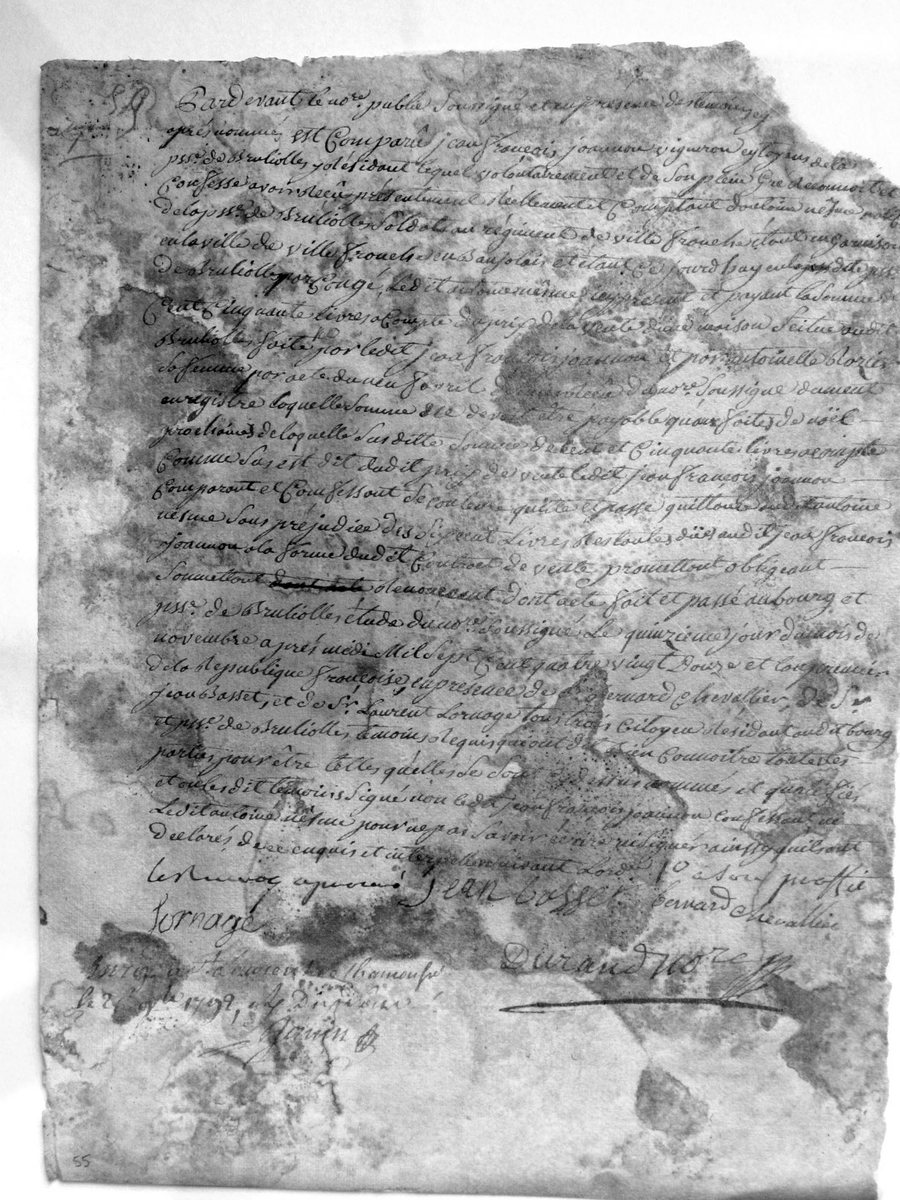 59
Pardevant le nore. public Soussigné et en présence des temoins cy
aprés nommés, est Comparû jean françois joannon vigneron cytoyens de la
psse. de Brullioles y Residant lequel volontairement et de Son plein Gré Reconnoit et
Confesse avoir Reçû presentement Réellement et Comptant d'antoine nesme
de la psse. de Brullioles Soldat au régiment de ville franche étant en garnison
en la ville de ville franche en Baujolais et étant Ce jourd'huy en la susdite psse.
de Brullioles par Congé, Ledit antoine nesme icy présent et payant la Somme de
Cent Cinquante Livres a Compte du prix de la vente d'une maison Scitue audit
Brullioles faite par ledit jean françois joannon et par antoinette
Sa femme par acte du neuf avril dernier Reçû du nore. Soussigné dûment
enregistré laquelle Somme de devoit être payable aux faites de nöel
prochaines de laquelle Susditte Somme de Cent et Cinquante livres acompte
Comme Sus est dit dudit prix de vente ledit jean françois joannon
Comparant et Confessant Se contente quitte et passe quittance audit antoine
nesme Sans préjudice des Sept cent Livres Restantes düës audit jean françois
joannon a la forme dudit Contract de vente promettant obligeant
Soumettant Renonceant Dont acte fait et passé au bourg et
psse. de Brullioles étude du nore. Soussigné, Le quinzieme jour du mois de
novembre aprés midi Mil Sept Cent quatre vingt Douze et l'an premier
de la République françoise, en présence de Sr. Bernard Chevallier, de Sr
jean Basset, et de Sr. Laurent Lornage tous trois Citoyen Residant audit bourg
et psse. de Brullioles témoins Requis qui ont dit bien Connoitre toutes les
parties pour être telles qu'elles Se Sont cy dessus nommés et qualifiés
et ont lesdit témoins Signé non ledit jean françois joannon confessant ni
Ledit antoine nesme pour ne pas Savoir écrire ni Signer ainsy qu'ils ont
declarés de ce enquis et interpellés suivant l'ordce.
Jean basset bernard Chevallier
Lornage
Durand nore
le 1792
55